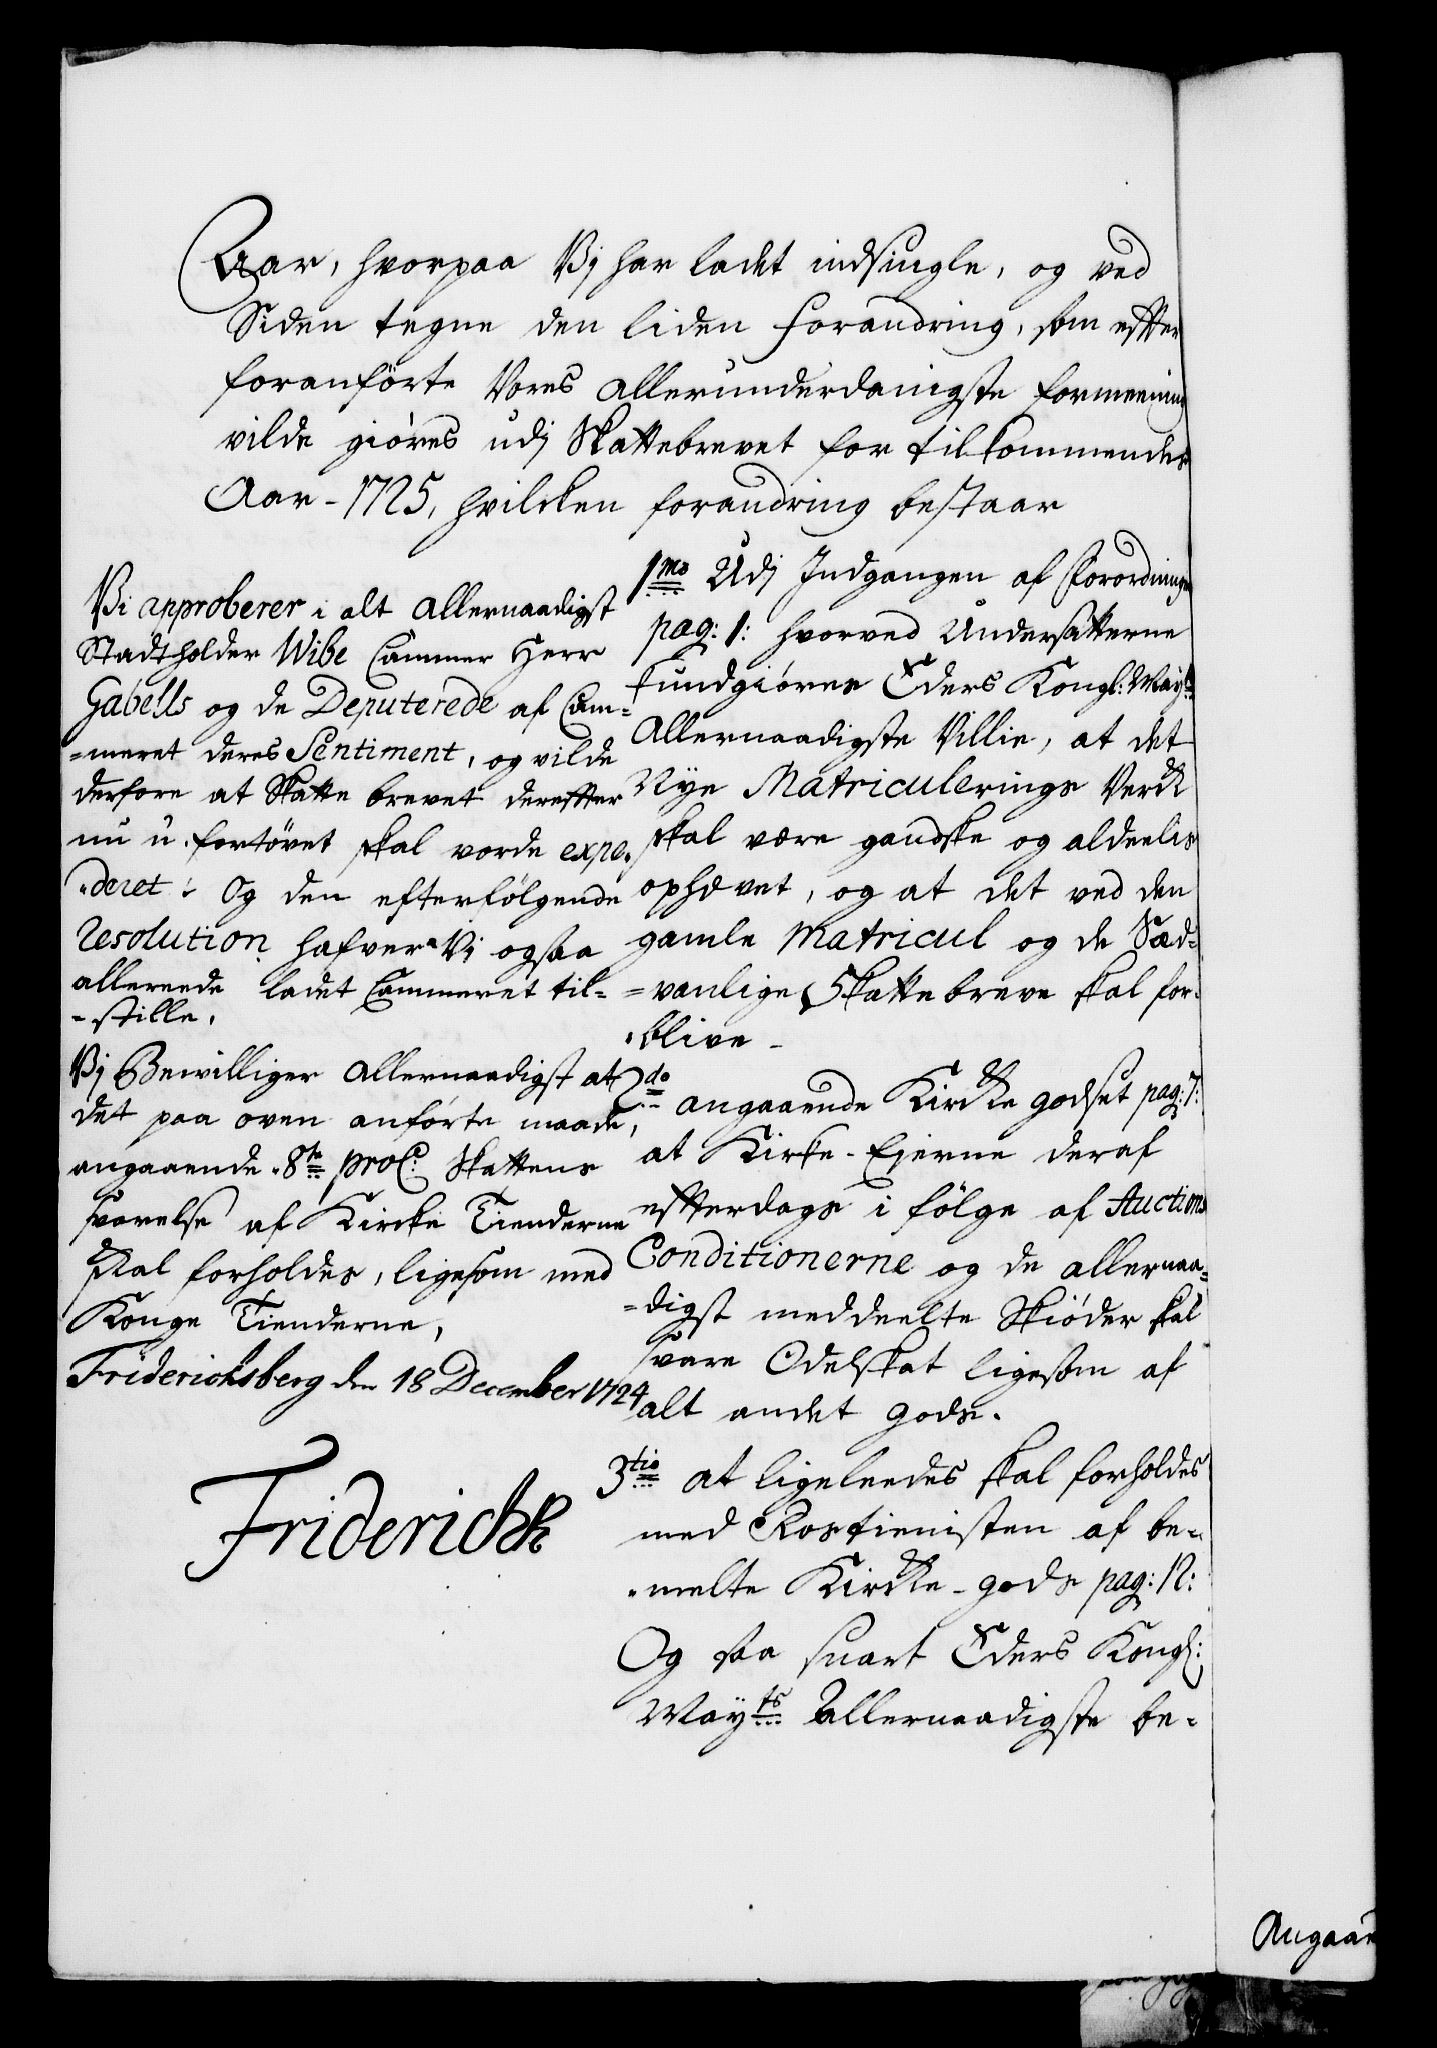 Aar, hvorpaa Vj har ladet indsingle, og ved
Siden tegne den liden forandring, som effter
foranförte Vores allerunderdanigste formeening
vilde giöres udj Skattebrevet for tilkommende
Aar - 1725, hvilcken forandring bestaar
Vi approberer i alt allernaadigst
Stadtholder Wibe Cammer Herr
Gabells og de Deputerede af Cam=
=meret deres Sentiment, og vilde
derfore at Skatte brevet dereffter
nu u-fortövet skal vorde expe=
=deret: Og den efterfölgende
resolution hafver Vi ogsaa
allereede ladet Cammeret til=
=stille.
Vj Bewilliger allernaadigst at
det paa oven anförte maade,
angaaende 8te proC: Skattens
svarelse af Kircke Tienderne
skal forholdes, ligesom med
Konge Tienderne,
Friderichsberg den 18 December 1724
Friderich R
1mo Udj Indgangen af Forordningen
pag: 1: hvorved Undersätterne
kundgiöres Eders Kongl: May:ts
Allernaadigste Villie, at det
Nye Matriculerings Verck
skal være gandske og aldeelis
ophævet, og at det ved den
gamle Matricul og de Sæd=
=vanlige Skatte breve skal for=
=blive -
2do angaaende Kircke godset pag: 7:
at Kirke-Ejerne deraf
effterdags i fölge af Auctions
Conditionerne og de allernaa=
=digst meddeelte Skiöder skal
svare Odelskat ligesom af
alt andet gods.
3tio at ligeleedes skal forholdes
med Rostienisten af be=
=melte Kircke-gods pag: 12:
Og saa snart Eders Kongl:
Mayts Allernaadigste be=
Angaae